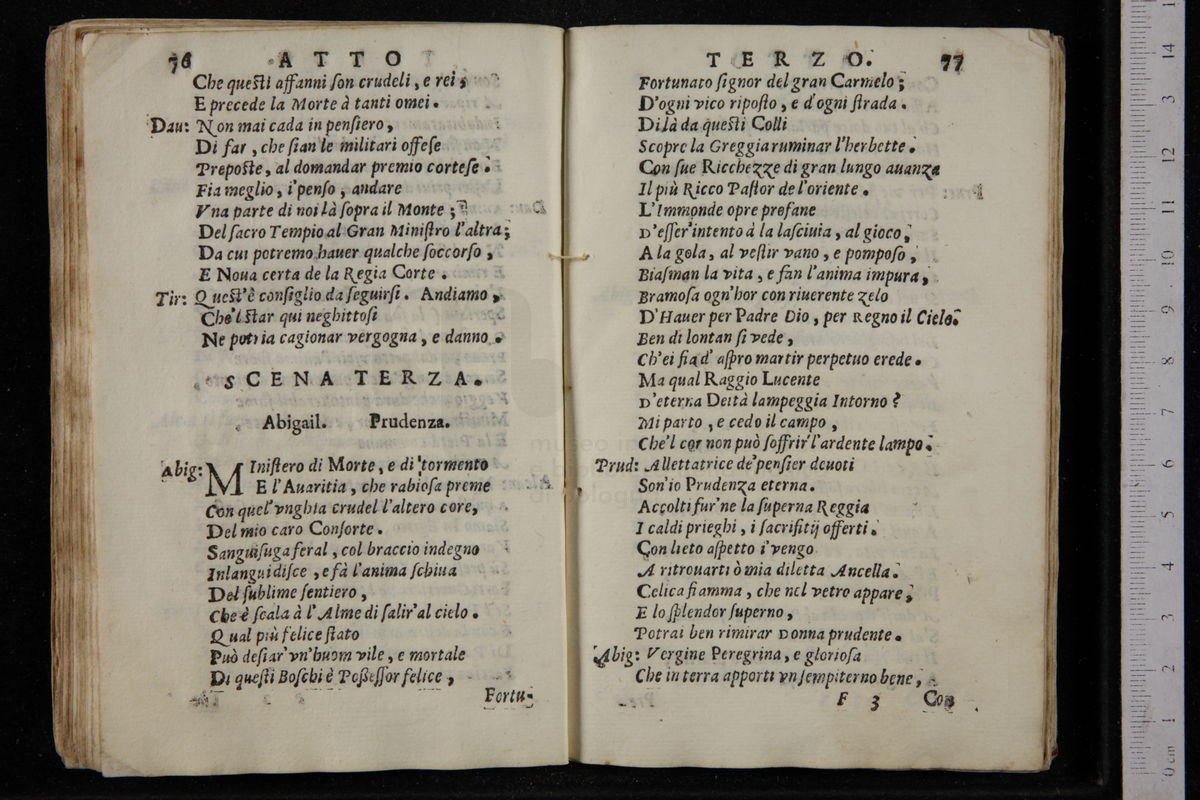 76 ATTO
Che questi affanni son crudeli, e rei;
E precede la Morte à tanti omei.
Dau: Non mai cada in pensiero,
Di far, che sian le militari offese
Preposte, al domandar premio cortese.
Fia meglio, i'penso, andare
Vna parte di noi là sopra il Monte;
Del sacro Tempio al Gran Ministro l'altra;
Da cui potremo hauer qualche soccorso,
E Noua certa de la Regia Corte.
Tir: Quest'è consiglio da seguirsi. Andiamo,
Che'l star qui neghittosi
Ne potria cagionar vergogna, e danno.
SCENA TERZA.
Abigail. Prudenza.
Abig: MInistero di Morte, e di tormento
E l'Auaritia, che rabiosa preme
Con quel'vnghia crudel l'altero core,
Del mio caro Consorte.
Sanguisuga feral, col braccio indegno
Inlanguidisce, e fà l'anima schiua
Del sublime sentiero,
Che è scala à l'Alme di salir'al cielo.
Qual più felice stato
Può desiar'vn'huom vile, e mortale
Di questi Boschi è Possessor felice,
Fortu-
TERZO. 77
Fortunato signor del gran Carmelo;
D'ogni vico riposto, e d'ogni strada.
Di là da questi Colli
Scopre la Greggia ruminar l'herbette.
Con sue Ricchezze di gran lungo auanza
Il più Ricco Pastor de l'oriente.
L'Immonde opre profane
D'esser'intento à la lasciuia, al gioco,
A la gola, al vestir vano, e pomposo,
Biasman la vita, e fan l'anima impura,
Bramosa ogn'hor con riuerente zelo
D'Hauer per Padre Dio, per Regno il Cielo.
Ben di lontan si vede,
Ch'ei fia d'aspro martir perpetuo erede.
Ma qual Raggio Lucente
D'eterna Deità lampeggia Intorno?
Mi parto, e cedo il campo,
Che'l cor non può soffrir l'ardente lampo.
Prud: Allettatrice de'pensier deuoti
Son'io Prudenza eterna.
Accolti fur'ne la superna Reggia
I caldi prieghi, i sacrifitij offerti.
Con lieto aspetto i'vengo
A ritrouarti ò mia diletta Ancella.
Celica fiamma, che nel vetro appare,
E lo splendor superno,
Potrai ben rimirar Donna prudente.
Abig: Vergine Peregrina, e gloriosa
Che in terra apporti vn sempiterno bene,
F 3 Con